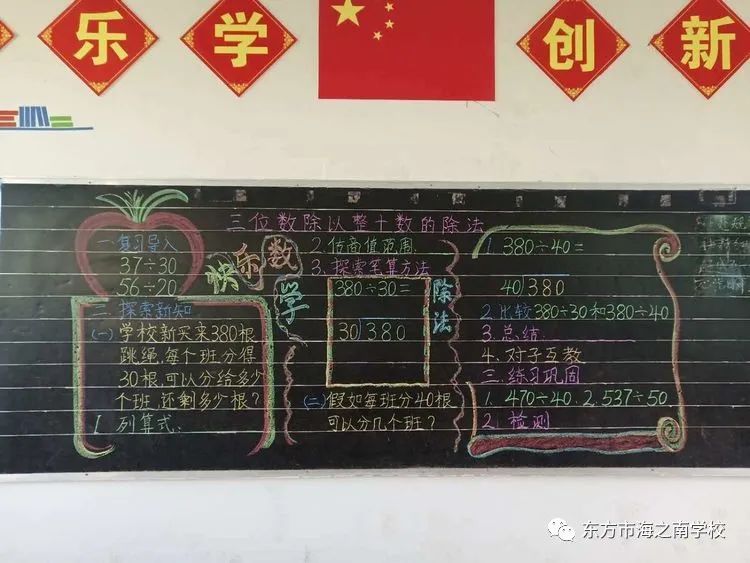 乐 学 创 新
三位数除以整十数的除法
一 复习导入
37÷30
56÷20
快乐数学
二 探索新知
(一) 学校新买来380根
跳绳,每个班分得
30根,可以分给多少
个班,还剩多少根?
1. 列算式:
2. 估商值范围
3. 探索笔算方法
380÷30=
30 380
除法
(二) 假如每班分40根
可以分几个班?
1. 380÷40=
40 380
2. 比较380÷30和380÷40
3. 总结
4. 对子互教
三. 练习巩固
1. 470÷40. 2. 537÷50
2. 检测
东方市海之南学校